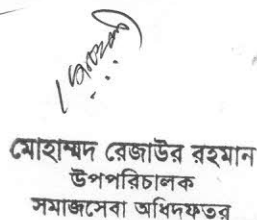 মোহাম্মদ রেজাউর রহমান
উপপরিচালক
সমাজসেবা অধিদফতর